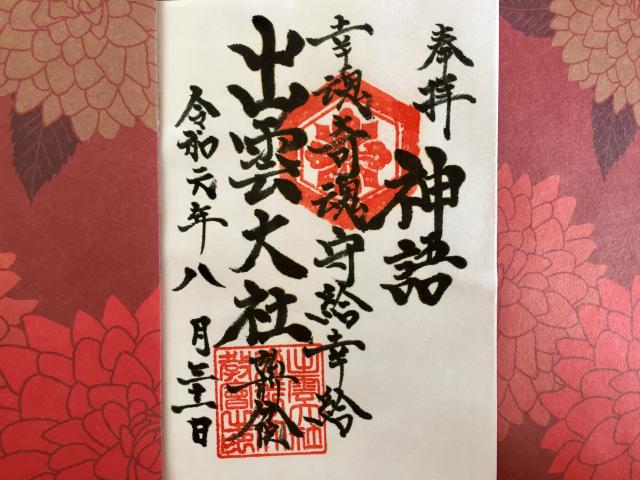 奉拝
神語
幸魂奇魂守給幸給
出雲大社
令和元年八月二十一日